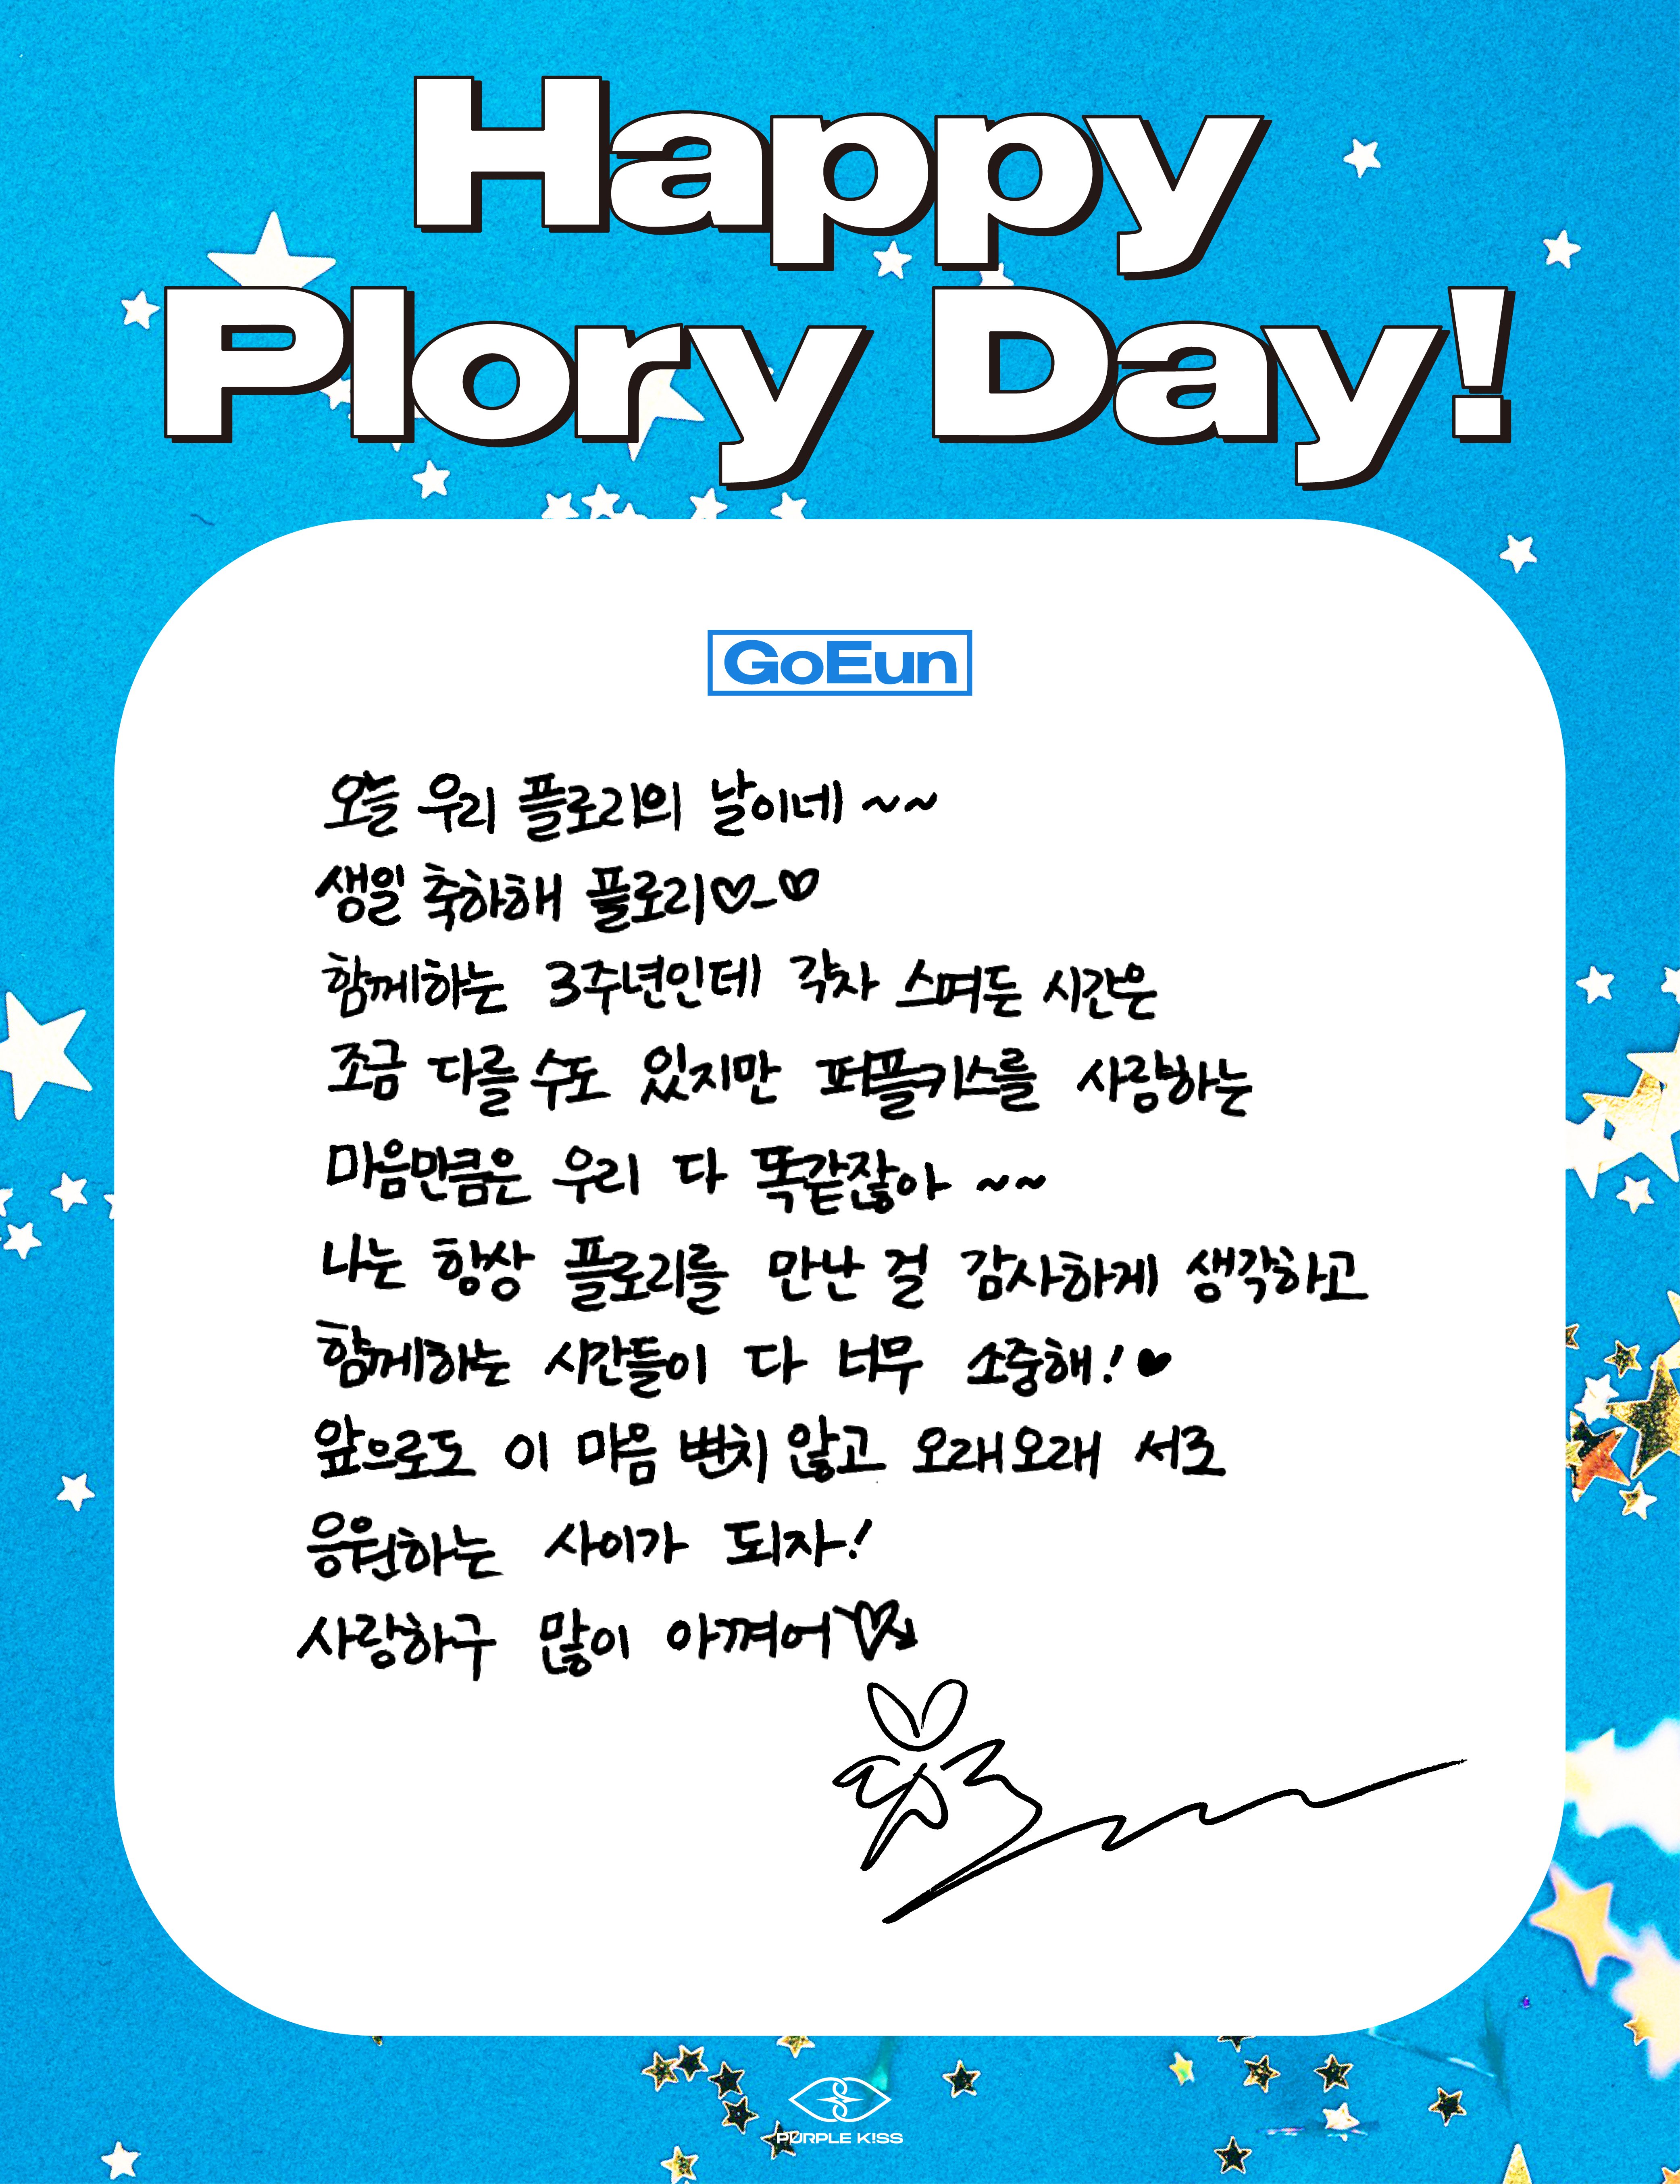 Happy
Plory Day!
GoEun
오늘 우리 플로리의 날이네 ~~
생일 축하해 플로리♡_♡
함께하는 3주년인데 각자 스며든 시간은
조금 다를 수도 있지만 퍼플키스를 사랑하는
마음만큼은 우리 다 똑같잖아 ~~
나는 항상 플로리를 만난 걸 감사하게 생각하고
함께하는 시간들이 다 너무 소중해! ♥
앞으로도 이 마음 변치 않고 오래오래 서로
응원하는 사이가 되자!
사랑하구 많이 아껴어♡
PURPLE K!SS